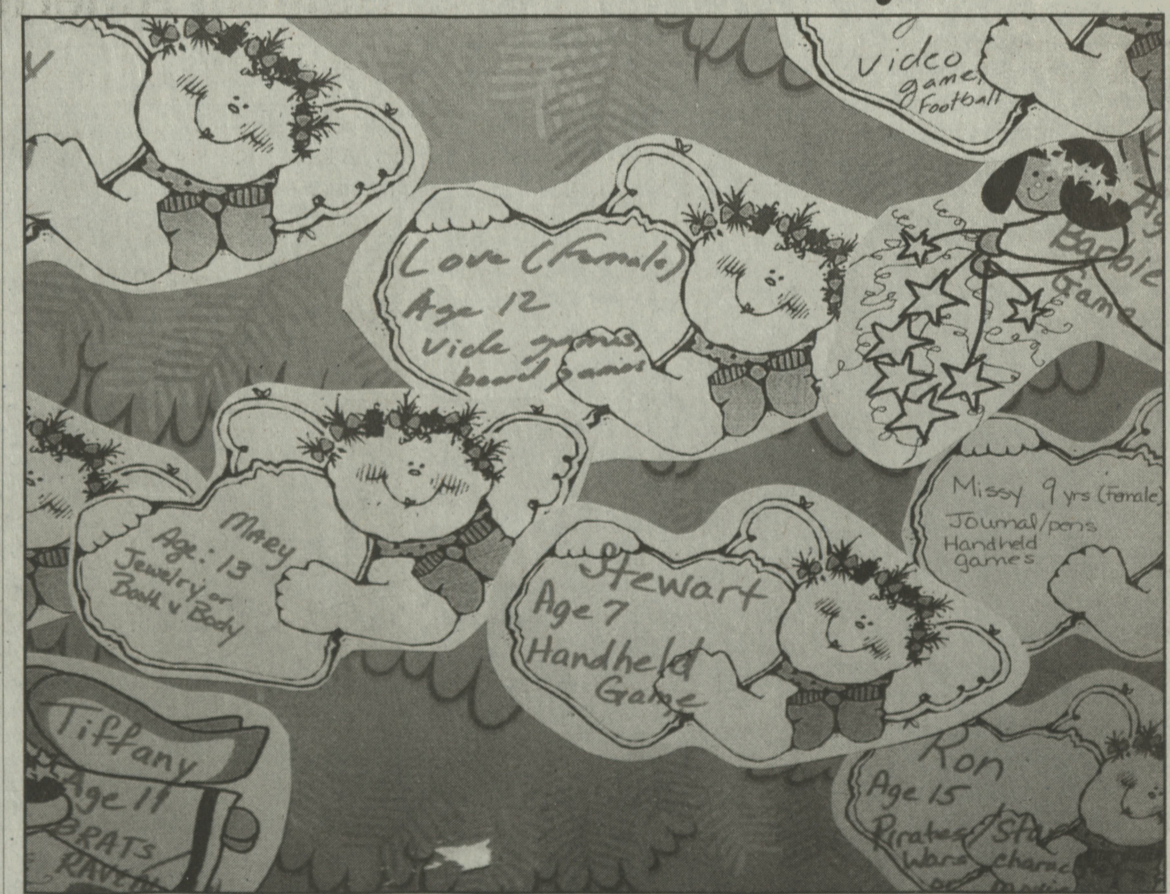 video
game
Football
Barbie
Game
Love (Female)
Age 12
vide games,
board games
Missy 9 yrs (Female)
Journal/pens
Handheld
games
MARY
Age: 13
Jewelry or
Bath & Body
Stewart
Age 7
Handheld
Game
Tiffany
Age 11
BRATs
Ron
Age 15
Pirates/Star
Wars charac